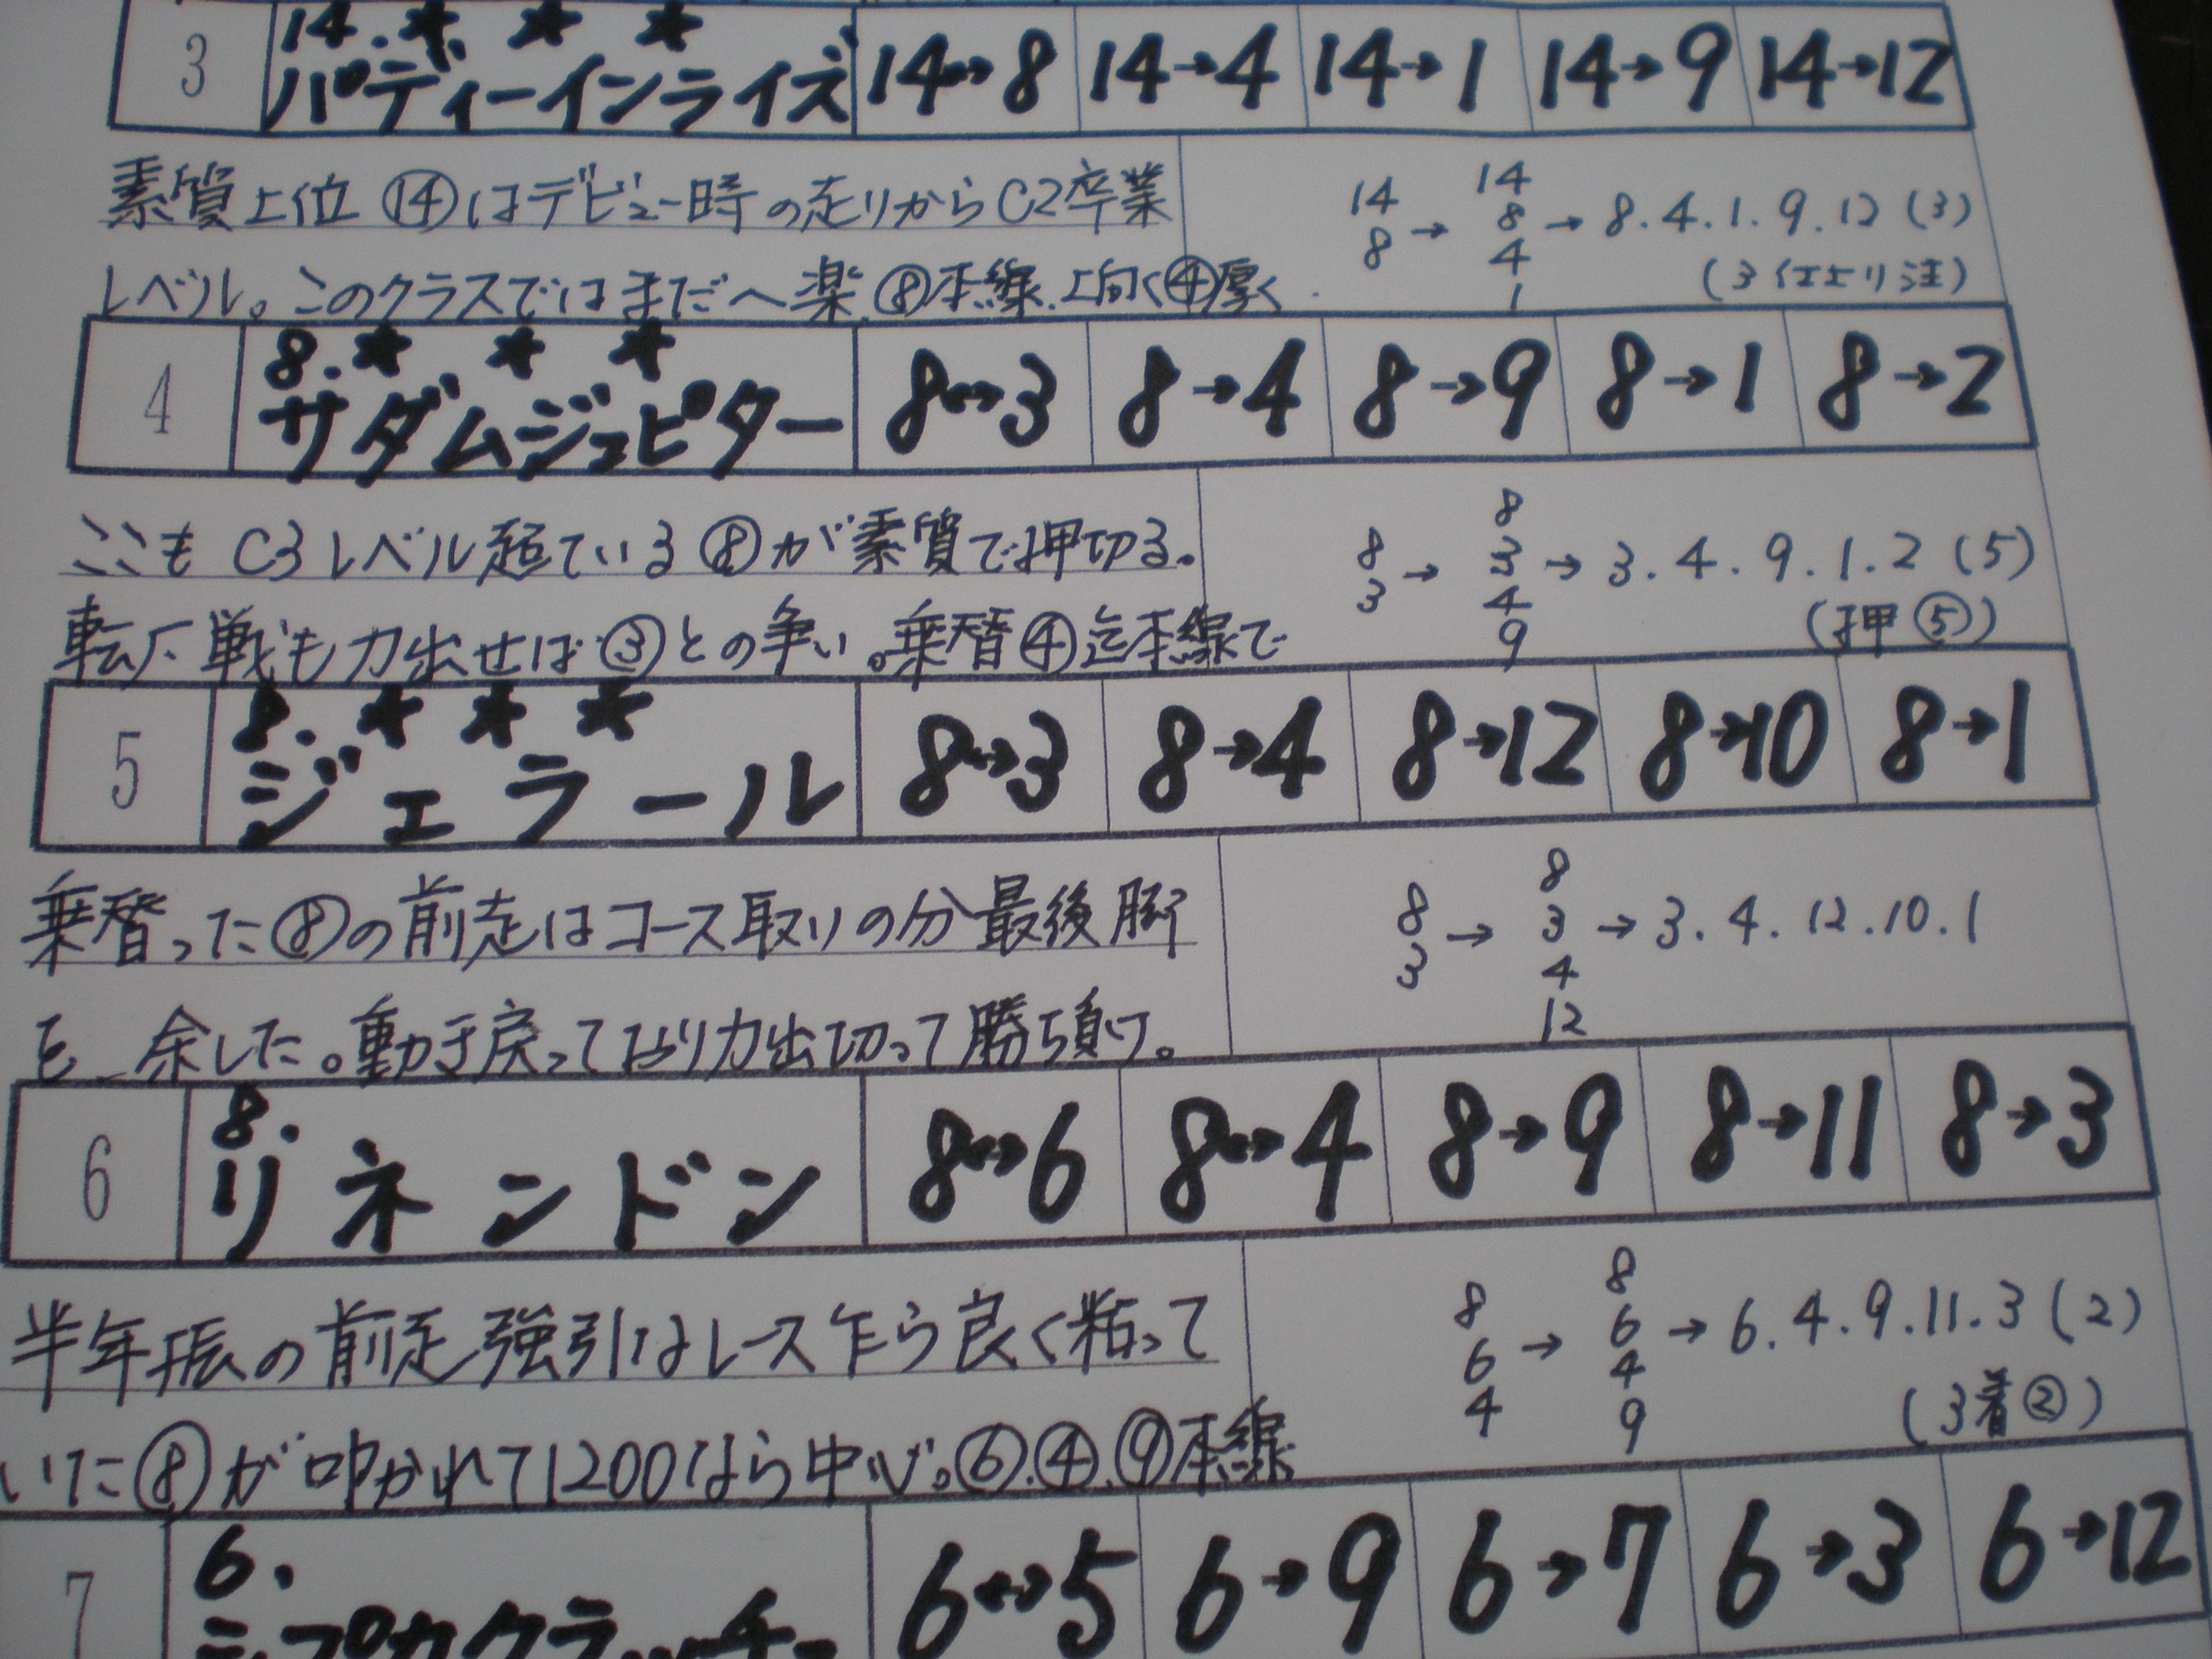 3 14. ★ ★ ★ パディーインライズ 14↔8 14→4 14→1 14→9 14→12
素質上位 ⑭はデビュー時の走りからC2卒業
レベル。このクラスではまだへ楽.⑧本線.上向く④厚く.
14 8 → 14 8 4 1 → 8.4.1.9.12 (3)
4 8.★ ★ ★ サダムジュピター 8↔3 8→4 8→9 8→1 8→2
ここも C3レベル超ている⑧が素質で押切る。
転厂戦も力出せば③との争い。乗替④迄本線で
8 3 → 8 3 4 9 → 3.4.9.1.2 (5)
(押⑤)
5 8. ★ ★ ★ ジェラール 8↔3 8→4 8→12 8→10 8→1
乗替った⑧の前走はコース取りの分最後脚
を余した。動き戻っており力出切って勝ち負け。
8 3 → 8 3 4 12 → 3.4.12.10.1
6 8. リネンドン 8↔6 8↔4 8→9 8→11 8→3
半年振の前走強引なレース乍ら良く粘って
いた⑧が叩かれて1200なら中心。⑥.④.⑨本線
8 6 4 → 8 6 4 9 → 6.4.9.11.3 (2)
(3着②)
7 6. 6↔5 6→9 6→7 6→3 6→12